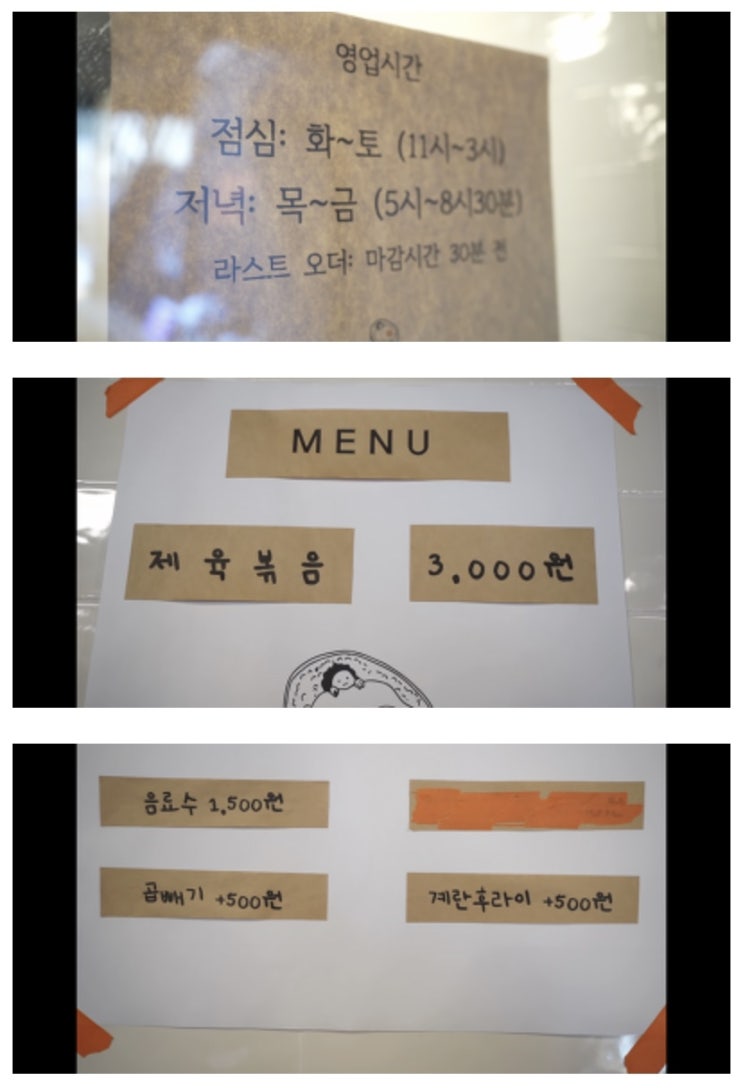 영업시간
점심: 화~토 (11시~3시)
저녁: 목~금 (5시~8시30분)
라스트 오더: 마감시간 30분 전
MENU
제육볶음 3,000원
음료수 1,500원
곱빼기 +500원 계란후라이 +500원